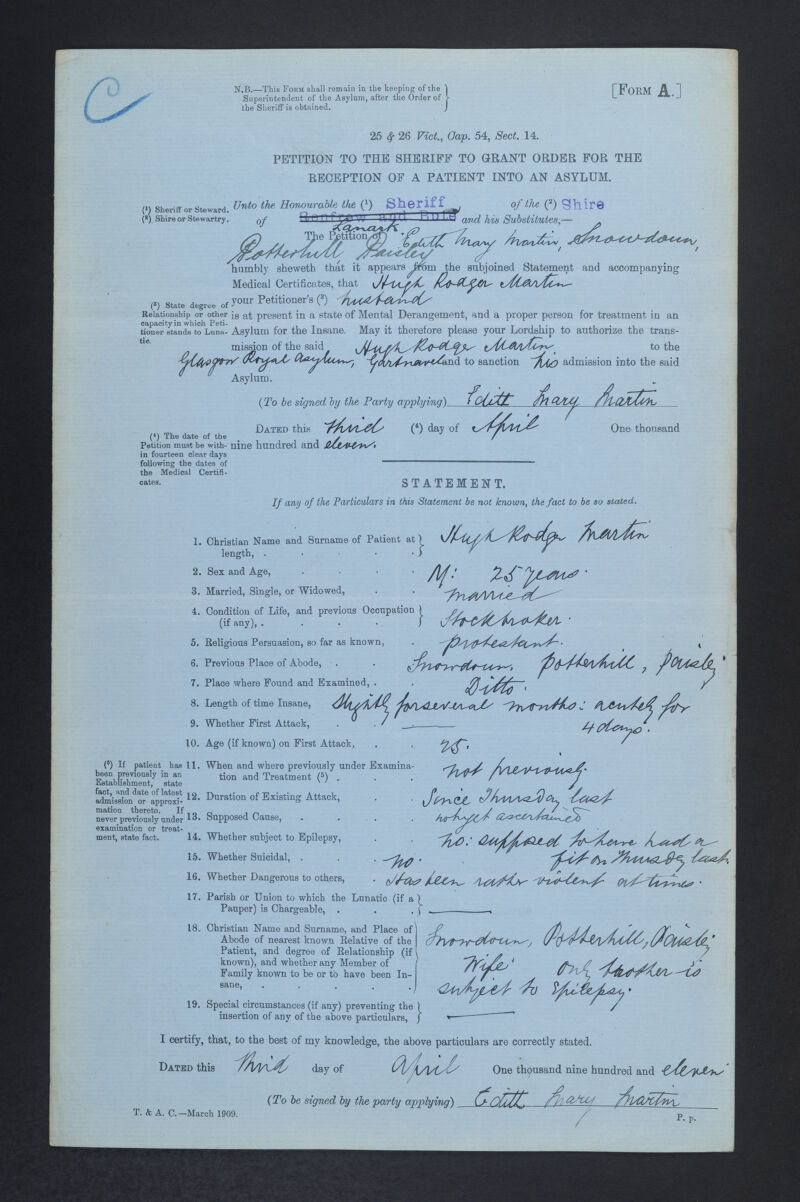 C
N.B.—This Form shall remain in the keeping of the
Superintendent of the Asylum, after the Order of
the Sheriff is obtained.
[Form A.]
25 & 26 Vict., Cap. 54, Sect. 14.
PETITION TO THE SHERIFF TO GRANT ORDER FOR THE
RECEPTION OF A PATIENT INTO AN ASYLUM.
(¹) Sheriff or Steward.
(²) Shire or Stewartry.
Unto the Honourable the (¹) Sheriff of the (²) Shire
of Renfrew and Bute and his Substitutes,—
Lanark.
The Petition of Edith Mary Martin, Snowdoun,
Potterhill, Paisley
humbly sheweth that it appears from the subjoined Statement and accompanying
Medical Certificates, that Hugh Rodger Martin
(³) State degree of
Relationship or other
capacity in which Peti-
tioner stands to Luna-
tic.
your Petitioner's (³) husband
is at present in a state of Mental Derangement, and a proper person for treatment in an
Asylum for the Insane. May it therefore please your Lordship to authorize the trans-
mission of the said Hugh Rodger Martin to the
Glasgow Royal Asylum, Gartnavel and to sanction his admission into the said
Asylum.
(To be signed by the Party applying) Edith Mary Martin
Dated this third (⁴) day of April One thousand
nine hundred and eleven.
(⁴) The date of the
Petition must be with-
in fourteen clear days
following the dates of
the Medical Certifi-
cates.
STATEMENT.
If any of the Particulars in this Statement be not known, the fact to be so stated.
1. Christian Name and Surname of Patient at
length, . Hugh Rodger Martin
2. Sex and Age, M: 25 years.
3. Married, Single, or Widowed, married
4. Condition of Life, and previous Occupation
(if any), . Stockbroker.
5. Religious Persuasion, so far as known, protestant.
6. Previous Place of Abode, Snowdoun, Potterhill, Paisley
7. Place where Found and Examined, . Ditto.
8. Length of time Insane, Slightly for several months: acutely for
4 days.
9. Whether First Attack, —
10. Age (if known) on First Attack, 25.
(⁵) If patient has
been previously in an
Establishment, state
fact, and date of latest
admission or approxi-
mation thereto. If
never previously under
examination or treat-
ment, state fact.
11. When and where previously under Examina-
tion and Treatment (⁵) . not previously.
12. Duration of Existing Attack, Since Thursday last
13. Supposed Cause, not yet ascertained
14. Whether subject to Epilepsy, no: supposed to have had a
fit on Thursday last
15. Whether Suicidal, no.
16. Whether Dangerous to others, Has been rather violent at times.
17. Parish or Union to which the Lunatic (if a
Pauper) is Chargeable, . —
18. Christian Name and Surname, and Place of
Abode of nearest known Relative of the
Patient, and degree of Relationship (if
known), and whether any Member of
Family known to be or to have been In-
sane, .
Snowdoun, Potterhill, Paisley
Wife. only brother is
subject to Epilepsy.
19. Special circumstances (if any) preventing the
insertion of any of the above particulars, —
I certify, that, to the best of my knowledge, the above particulars are correctly stated.
Dated this third day of April One thousand nine hundred and eleven
(To be signed by the party applying) Edith Mary Martin
T. & A. C.—March 1909.
P. p.